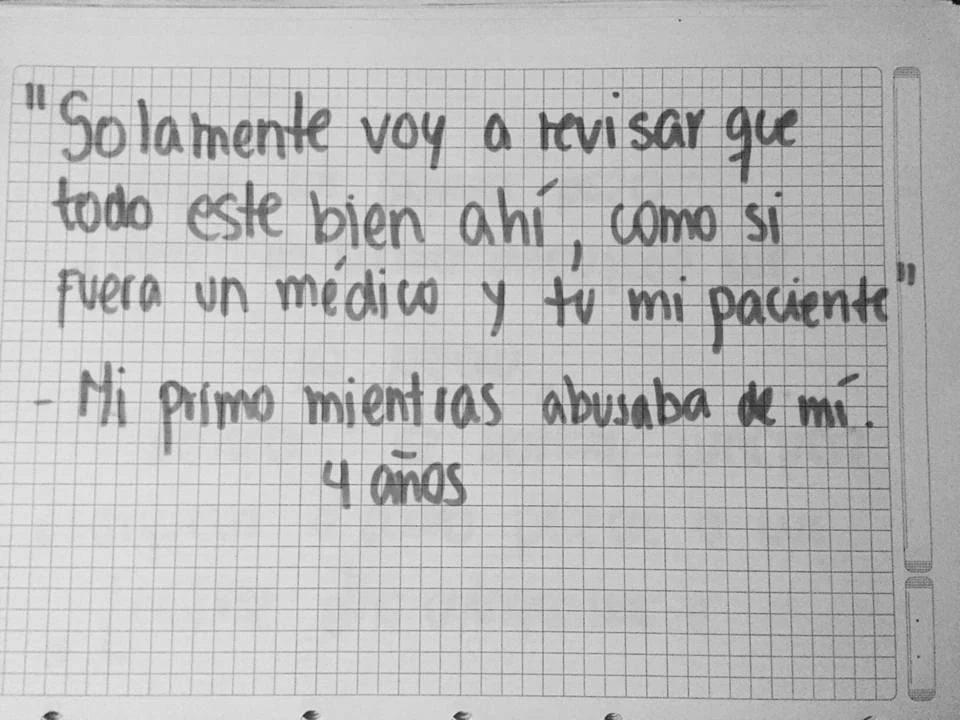 "Solamente voy a revisar que
todo este bien ahí, como si
fuera un médico y tú mi paciente"
- Mi primo mientras abusaba de mí.
4 años